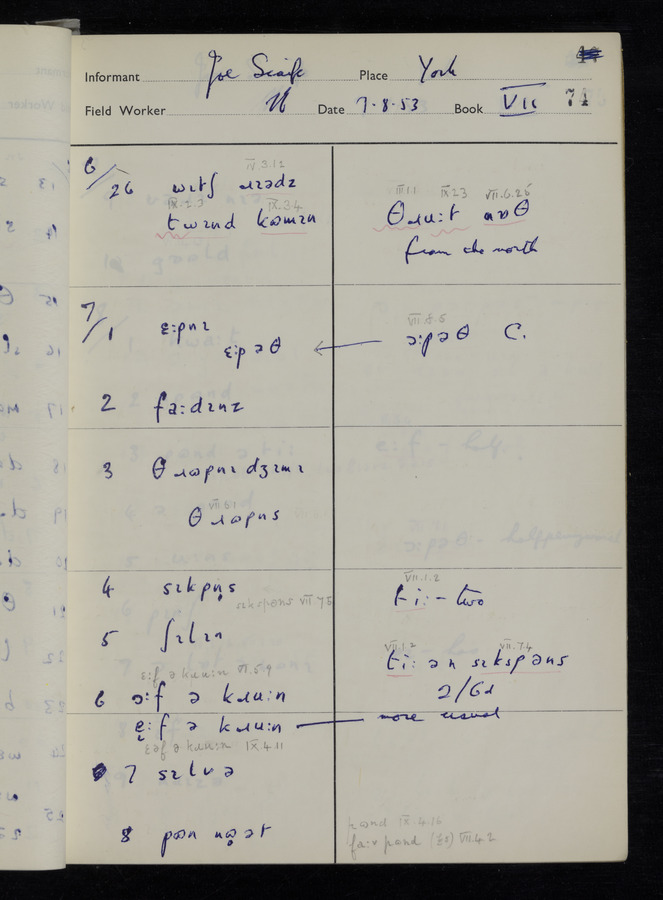 Informant Joe Scaife Place York
Field Worker Date 7-8-53 Book VII 71
6/26 wɪtʃ ɹɪədz
IV.3.12
IX.2.3 IX.3.4
twɪnd kɒmɪn
III.1.1 IX.2.3 VII.6.25
θɹu:t nɒθ
from the north
7/1 ɛ:pnɪ
ɛ:pəθ
VII.7.5
ɔ:pəθ C.
2 fa:dɪnz
3 θɹɒpnɪ dʒɪmɪ
VII.5.1
θɹɒpns
4 sɪkpn̩s
sɪkspəns VII 7.5
VII.1.2
ti: - two
5 ʃɪlɪn
VII.1.2 VII.7.4
ti: ən sɪkspəns
2/6d
ɛ:f ə kɹu:n VI.5.9
6 ɔ:f ə kɹu:n
ɛ:f ə kɹu:n — more usual
ɛəf ə kɹu:n IX.4.11
7 sɪlvə
8 pɒn nɒət
pɒnd IX.4.16
fa:v pɒnd (£5) VII.4.2